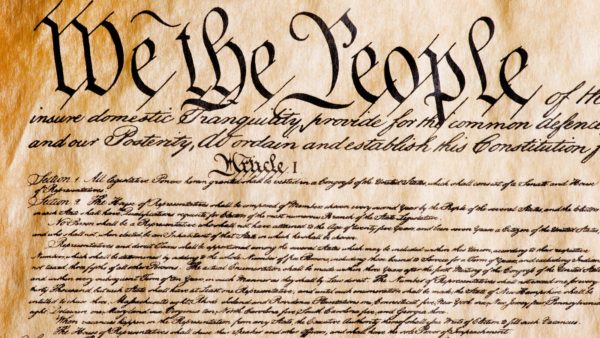 We the People of the
insure domestic Tranquility, provide for the common defence
and our Posterity, do ordain and establish this Constitution f
Article I
Section 1. All legislative Powers herein granted shall be vested in a Congress of the United States, which shall consist of a Senate and House
of Representatives.
Section 2. The House of Representatives shall be composed of Members chosen every second Year by the People of the several States, and the Electors
in each State shall have Qualifications requisite for Electors of the most numerous Branch of the State Legislature.
No Person shall be a Representative who shall not have attained to the Age of twenty five Years, and been seven Years a Citizen of the United States,
and who shall not, when elected, be an Inhabitant of that State in which he shall be chosen.
Representatives and direct Taxes shall be apportioned among the several States which may be included within this Union, according to their respective
Numbers, which shall be determined by adding to the whole Number of free Persons, including those bound to Service for a Term of Years, and excluding Indians
not taxed, three fifths of all other Persons. The actual Enumeration shall be made within three Years after the first Meeting of the Congress of the United States
within every subsequent Term of ten Years, in such Manner as they shall by Law direct. The Number of Representatives shall not exceed one for every
thirty Thousand, but each State shall have at Least one Representative; and until such enumeration shall be made, the State of New Hampshire shall be
entitled to chuse three, Massachusetts eight, Rhode Island and Providence Plantations one, Connecticut five, New York six, New Jersey four, Pennsylvania
eight, Delaware one, Maryland six, Virginia ten, North Carolina five, South Carolina five, and Georgia three.
When vacancies happen in the Representation from any State, the Executive Authority thereof shall issue Writs of Election to fill such Vacancies.
The House of Representatives shall chuse their Speaker and other Officers; and shall have the sole Power of Impeachment.